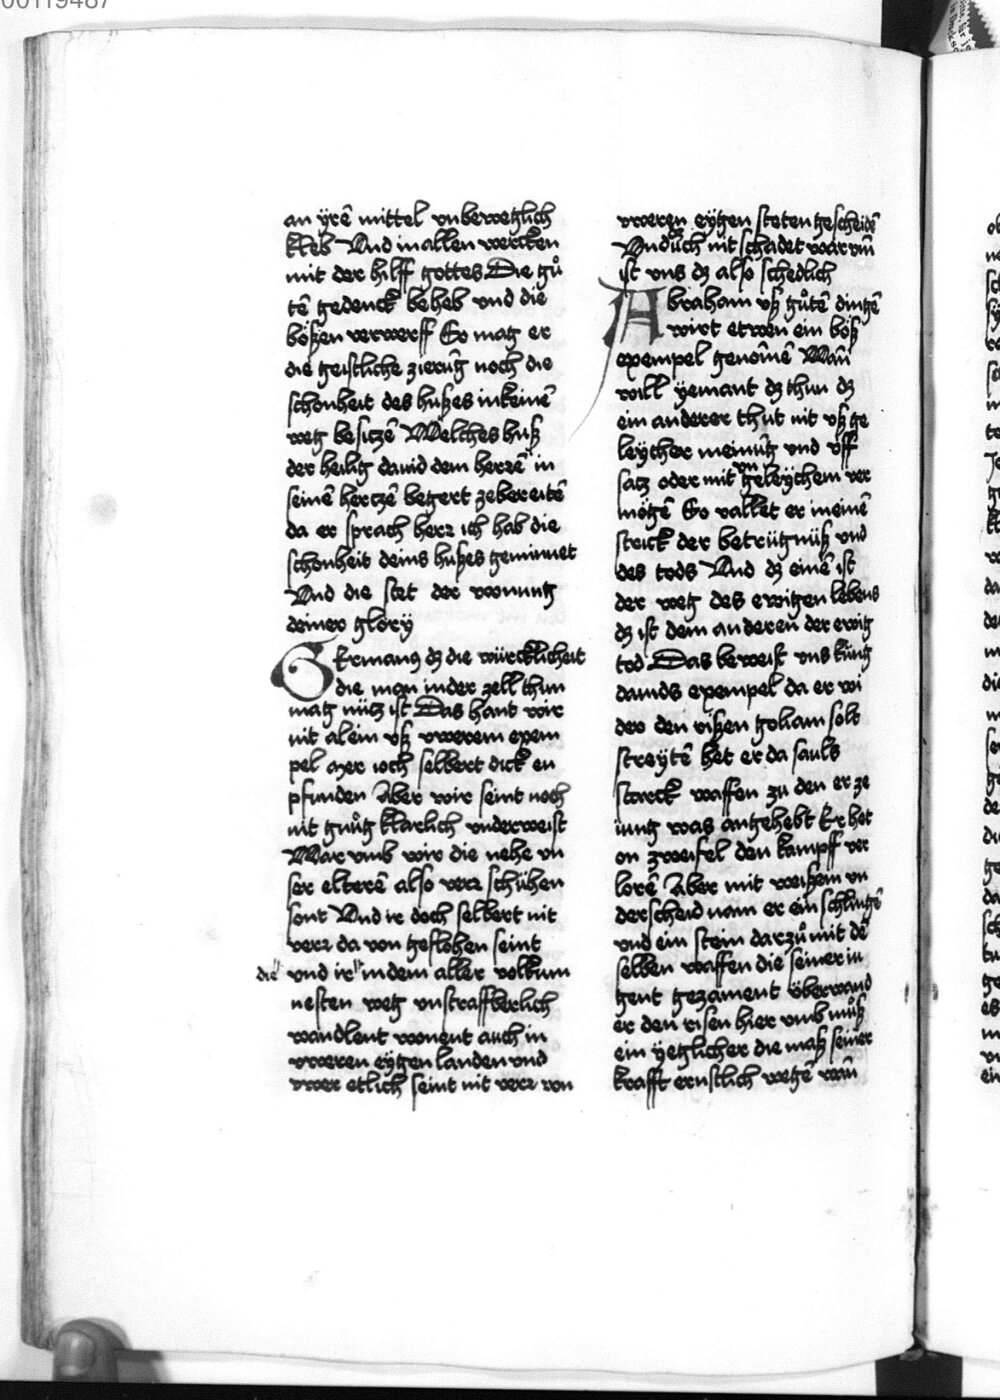 00119487
an yrē mittel vnbeweglich
kleb Vnd in allen wercken
mit der hilff gottes Die gů
tē gedenck beheb vnd die
bößen verwerff So mag er
die geistliche zierūg noch die
schonheit des hußes in keinē
weg besitzē Welches huß
der heilig dauid dem herrē in
seinē hertzē begert ze bereitē
da er sprach herr ich hab die
schonheit deins hußes geminnet
Vnd die stet der wonung
deiner glory
Germanus dz die würcklicheit
die man in der zell thun
mag nütz ist Das hant wir
nit alein vß vwerem exem
pel mer ioch selbert dick en
pfunden Aber wir seint noch
nit gnůg klarlich vnderweist
Warumb wir die nehe vn
ser elterē also verr schühen
sont Vnd ir doch selbert nit
verr da von geflohen seint
die vnd ir in dem aller volkum
nesten weg vnstraffberlich
wandlent wonent auch in
vweren eygen landen vnd
vwer etlich seint nit verr von
vweren eygen steten gescheidē
Vnd üch nit schadet warum̄
ist vns dz also schedlich
Abraham vß gůtē dingē
wirt etwen ein böß
exempel genom̄ē Wan̄
will yemant dz thun dz
ein anderer thut nit vß ge
leycher meinūg vnd vff
satz oder mit vn geleychem ver
mögē So vallet er in einē
strick der betrügnüß vnd
des tods Vnd dz einē ist
der weg des ewigen lebens
dz ist dem anderen der ewig
tod Das beweist vns künig
dauids exempel da er wi
der den rißen goliam solt
streytē het er da sauls
starck waffen zu den er ze
iung was angehebt Er het
on zweifel den kampff ver
lorē Aber mit weißem vn
derscheid nam er ein schlingē
vnd ein stein darzů mit dē
selben waffen die seiner iu
gent gezament überwand
er den risen hier vmb můß
ein yeglicher die maß seiner
krafft ernstlich wegē wan̄